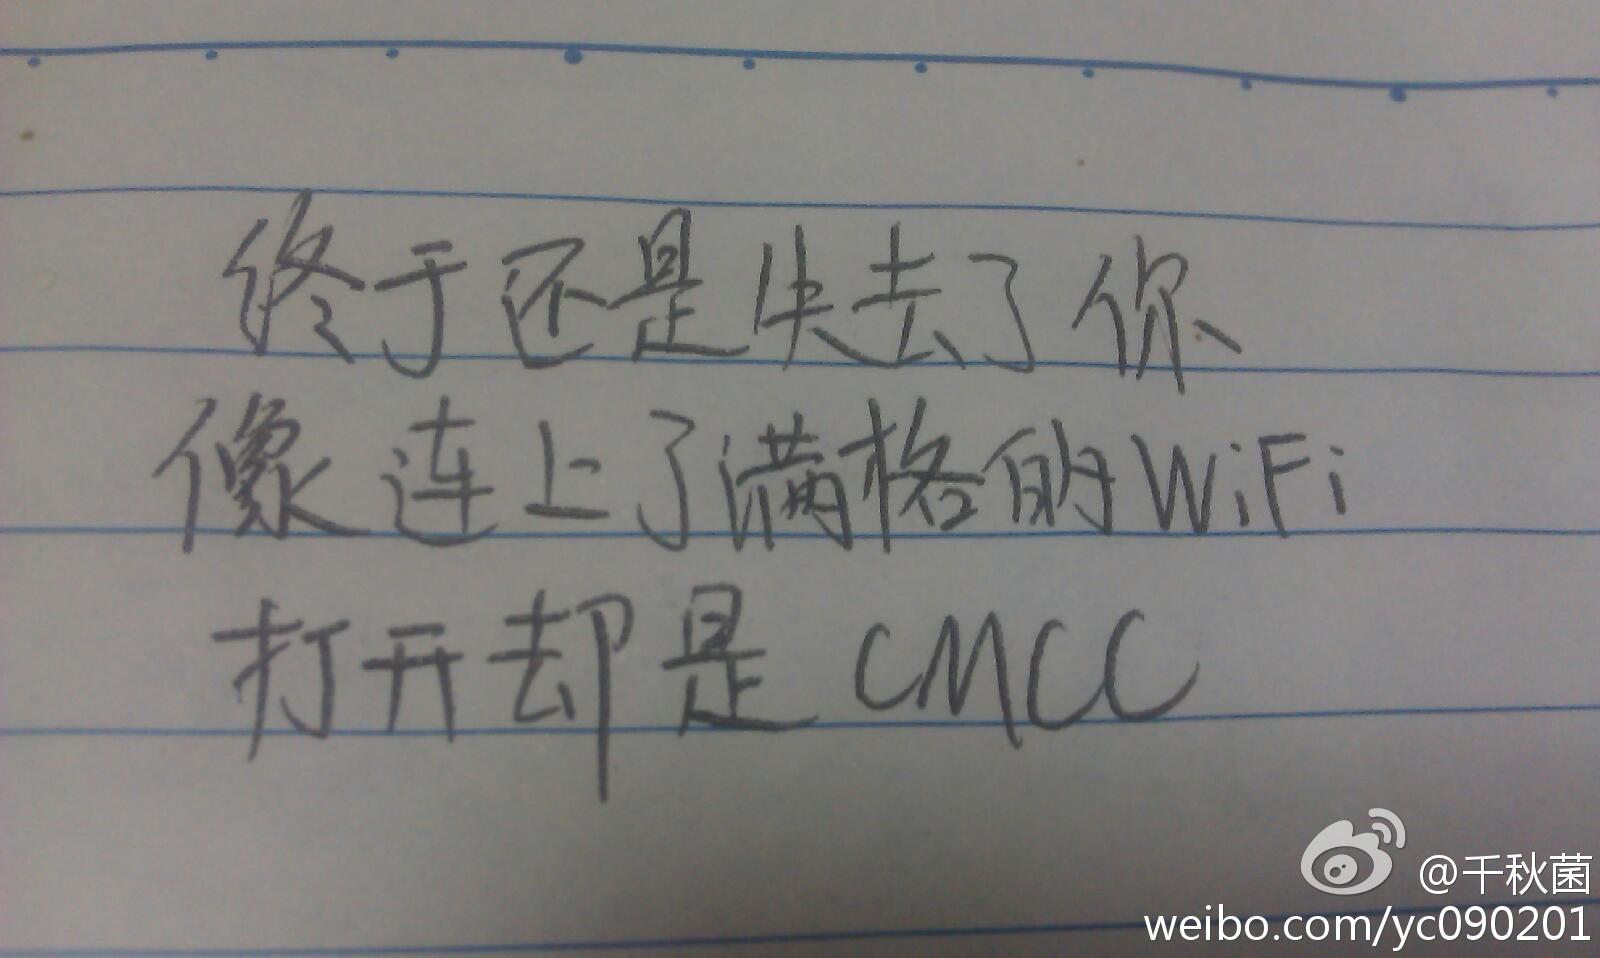 终于还是失去了你
像连上了满格的WiFi
打开却是CMCC
@千秋菌
weibo.com/yc090201